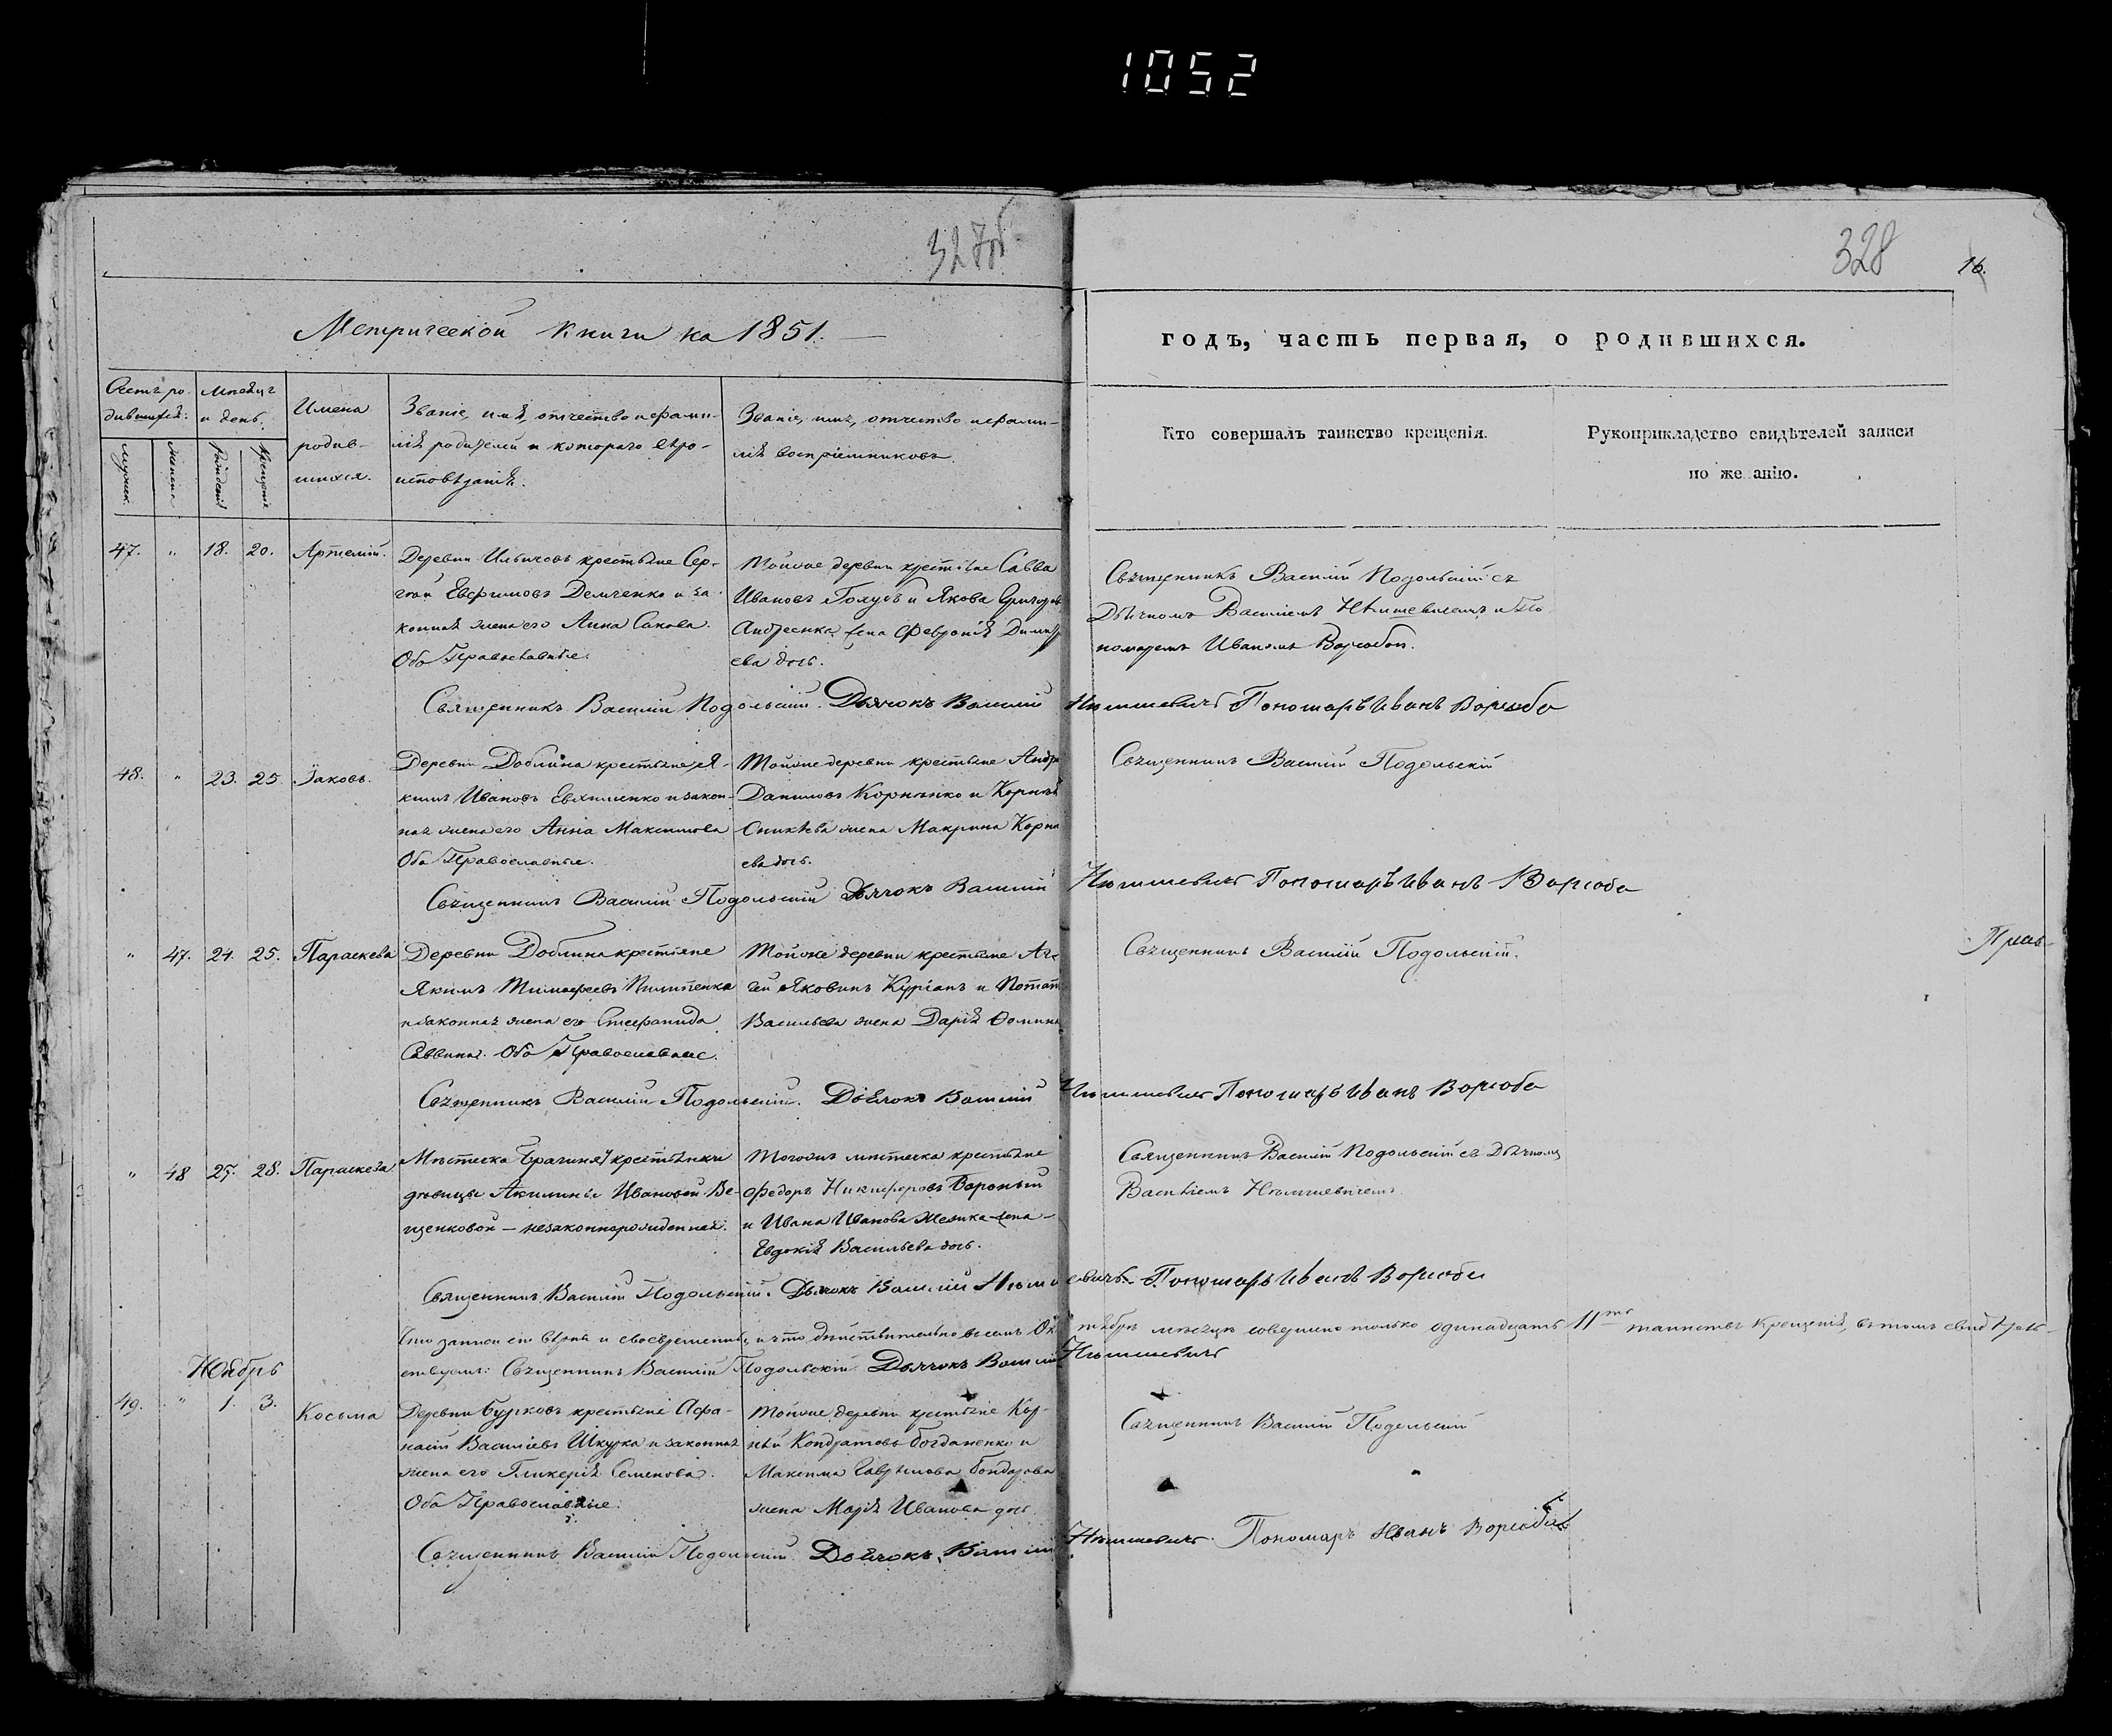 1052
327об
328
16.
Метрической книги на 1851.
годъ, часть первая, о родившихся.
Счетъ ро-
дившихся:
Мѣсяцъ
и день.
Имена
родив-
шихся.
Званіе, имя, отчество и фами-
лія родителей и котораго вѣро-
исповѣданія.
Званіе, имя, отчество и фами-
лія воспріемниковъ.
Кто совершалъ таинство крещенія.
Рукоприкладство свидѣтелей записи
по же анію.
мужск.
женска
рожденія
крещенія
47. " 18. 20. Артемій.
Деревни Ильичовъ крестьяне Сер-
гѣй Евфимовъ Демченко и за-
конная жена его Анна Савова.
Оба Православные.
Тойже деревни крестьяне Савва
Ивановъ Голубъ и Якова Григорьев
Андреенка жена Февронія Димитр
ева дочь.
Священникъ Василій Подольскій съ
Дьячкомъ Василіемъ Нѣмшевичемъ и По
номаремъ Иваномъ Воробьи.
Священникъ Василій Подольскій. Дьячокъ Василій Нѣмшевичъ Пономарь Иванъ Воробо
48. " 23. 25. Іаковъ.
Деревни Доблина крестьяне Я-
кимъ Ивановъ Евхименко и закон-
ная жена его Анна Максимова
Оба Православные.
Тойже деревни крестьяне Андр
Даниловъ Корнѣнко и Корнѣя
жена Макрина Корни
ева дочь.
Священникъ Василій Подольскій
Священникъ Василій Подольскій Дьячокъ Василій Нѣмшевичъ Пономарь Иванъ Воробо
" 47. 24. 25. Параскева
Деревни Доблина крестьяне
Якимъ Тимофеевъ Пилипенко
и законная жена его Стефанида
Саввина. Оба Православные.
Тойже деревни крестьяне Аѳ-
Яковинъ Курганъ и Потап
Васильева жена Дарія Ѳомина
Священникъ Василій Подольскій.
Прав-
Священникъ Василій Подольскій. Дьячокъ Василій Нѣмшевичъ Пономарь Иванъ Воробо
" 48 27. 28. Параскева
Мѣстечка Брагиня крестьянки
дѣвицы Акилины Ивановой Ве-
щенковой — незаконнорожденная.
Тогожъ мѣстечка крестьяне
Федоръ Никифоровъ Вороный
и Ивана Иванова жена
Евдокія Васильева дочь.
Священникъ Василій Подольскій съ Дьячкомъ
Василіемъ Нѣмшевичемъ.
Священникъ Василій Подольскій. Дьячокъ Василій Нѣмшевичъ. Пономарь Иванъ Воробо
Что записи сіи вѣрны и своевременны, и что дѣйствительно въ семъ Октябрѣ мѣсяцѣ совершено только одинадцать 11ть таинствъ крещенія, въ томъ свидѣтель-
ствуемъ: Священникъ Василій Подольскій Дьячокъ Василій Нѣмшевичъ
Ноябрь
49. " 1. 3. Косьма
Деревни Бурковъ крестьяне Афа-
насій Василіевъ Шкурка и законная
жена его Гликерія Семенова.
Оба Православные.
Тойже деревни крестьяне Кор-
нѣй Кондратовъ Богданенко и
Максима Гаврилова Бондарова
жена Марія Иванова дочь
Священникъ Василій Подольскій
Священникъ Василій Подольскій Дьячокъ Василій Нѣмшевичъ. Пономарь Иванъ Воробо